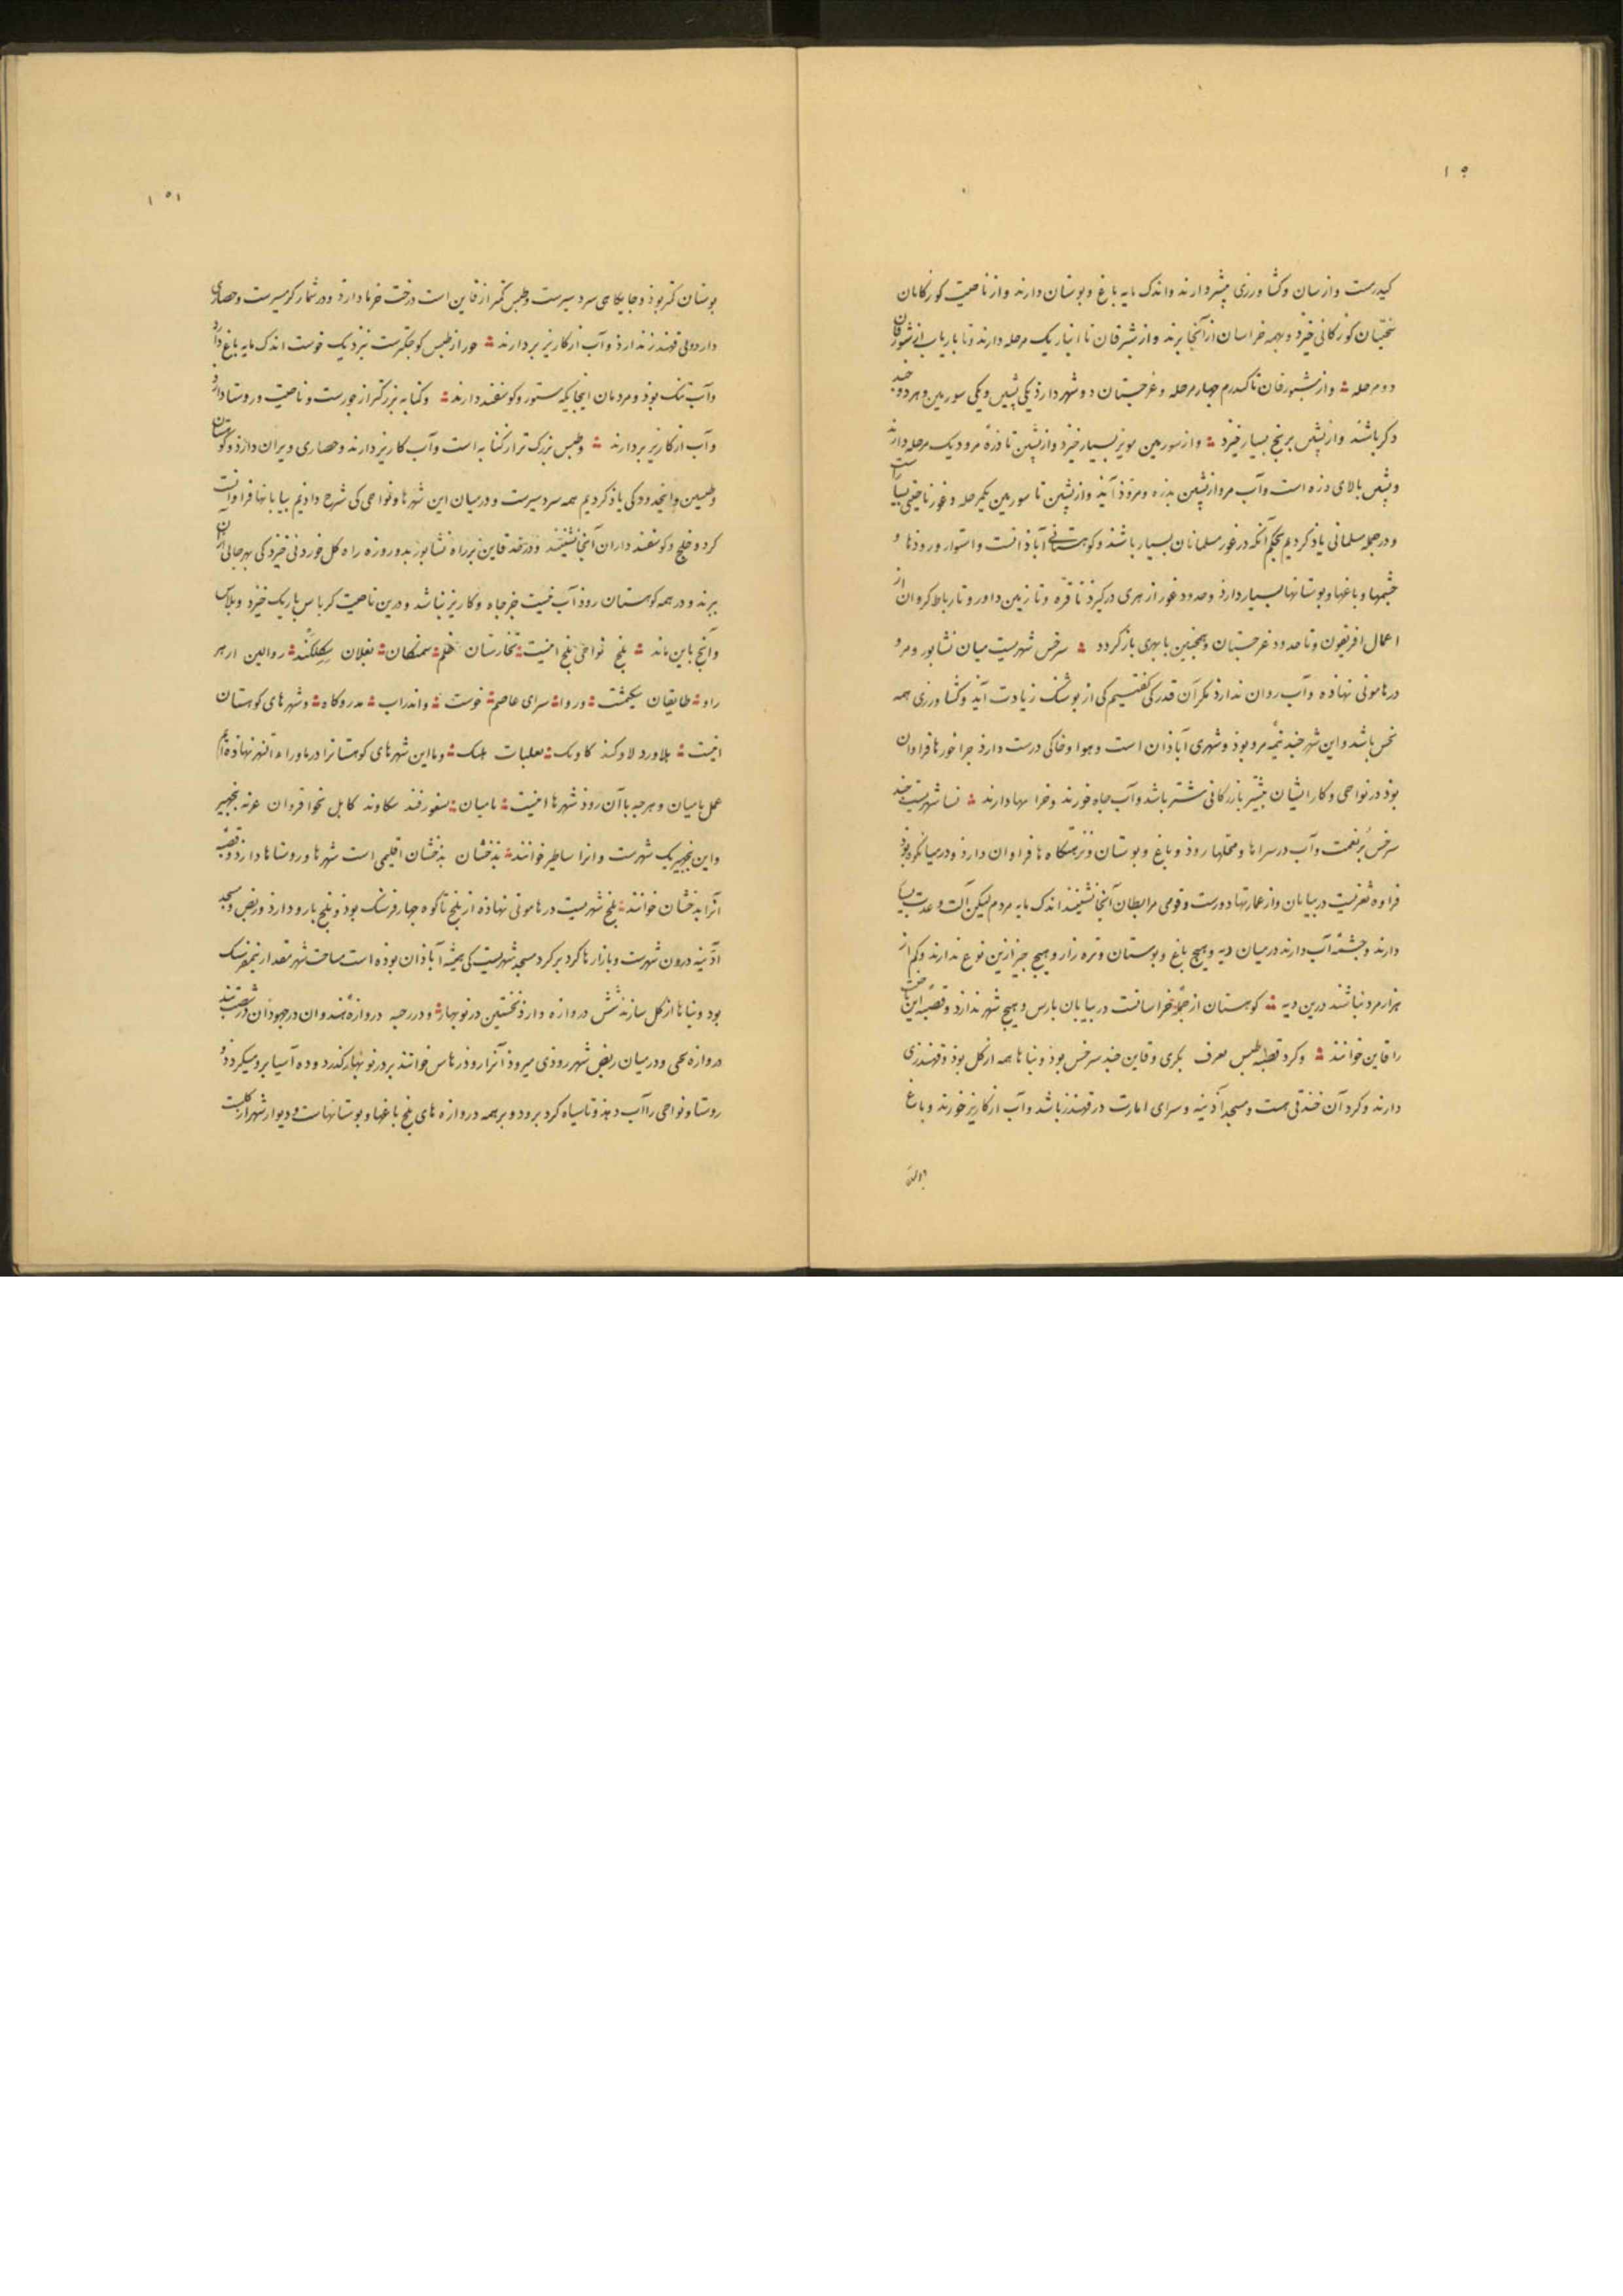 کیدرست وازسان وکشاورزی بیشتر دارند واندک مایه باغ وبوستان دارند واز ناحیت کوزکانان
کوزکانی خیزد وبهمه خراسان ازآنجا برند واز شبرقان تا انبار یک مرحله دارند وتا باریاب
دومرحله واز شبورقان تا کندرم جهار مرحله وغرجستان دو شهر دارد یکی بشین ویکی سورمین وهردو
دکر باشند واز بشین برنج بسیار خیزد واز سورمین مویز بسیار خیزد واز بشین تا دزه مرو دیک مرحله دارند
وبشین بالای دزه است وآب مرو از بشین بدزه ومرود آید واز بشین تا سورمین یکمرحله وغور ناحیتی
ودر جمله مسلمانی یاد کردیم بحکم آنکه در غور مسلمانان بسیار باشند وکوهستانی آبادانست واستوار ورودها و
جشمها وباغها وبوستانها بسیار دارد وحدود غور از هری درکیرد تا فره وتا زمین داور وتا رباط کروان از
اعمال افریغون وتا حدود غرجستان وهمجنین با بهری بازکردد سرخس شهریست میان نشابور ومرو
در هامونی نهاده وآب روان ندارد مکر آن قدر کی کفتیم کی از بوشنک زیادت آید وکشاورزی همه
نخس باشد واین شهر جند نیمه مرو بود وشهری آبادان است وهوا وخاکی درست دارد جراخورها فراوان
بود در نواحی وکار ایشان بیشتر بازرکانی شتر باشد وآب جاه خورند وخراسها دارند نسا شهریست جند
سرخس برنعمت وآب در سراها ومحلتها رود وباغ وبوستان ونزهتکاه ها فراوان دارد ودر میان
فراوه ثغریست در بیابان واز عمارتها دورست وقومی مرابطان آنجا نشینند اندک مایه مردم لیکن آلت وعدت
دارند وجشمه آب دارند در میان دیه وهیج باغ وبوستان وتره زار وهیج جیز ازین نوع ندارند وکم از
هزار مرد نباشند درین دیه کوهستان از جمله خراسانست در بیابان بارس وهیج شهر ندارد وقصبه این ناحیت
را قاین خوانند وکرد قصبه طبس بعرف بکری وقاین جند سرخس بود وبناها همه از کل بود وقهندزی
دارند وکرد آن خندقی هست ومسجد آدینه وسرای امارت در قهندز باشد وآب از کاریز خورند وباغ
۱۵۱
بوستان کمتر بود وجایکاهی سردسیرست وطبس کمتر از قاین است درخت خرما دارد ودر شمار کرمسیرست وحصاری
دارد ولی قهندز ندارد وآب از کاریز بردارند خور از طبس کوجکترست نزدیک خوست اندک مایه باغ دارد
وآب تنک بود ومردمان اینجایکه ستور وکوسفند دارند وکنابه بزرکتر از خورست وناحیت وروستا دارد
وآب از کاریز بردارند وطبس بزرک تر از کنابه است وآب کاریز دارند وحصاری ویران دارد وکوهستان
وطبسین واین حدود کی یاد کردیم همه سردسیرست ودر میان این شهرها ونواحی کی شرح دادیم بیابانها فراوانست
کرد وخلج وکوسفند داران آنجا نشینند ودر حد قاین بر راه نشابور بدو روزه راه کل خوردنی خیزد کی بهر جائی ازان
برند ودر همه کوهستان رود آب نیست جز جاه وکاریز نباشد ودرین ناحیت کرباس باریک خیزد وبلاس
وآنج باین ماند بلخ نواحی بلخ اینست تخارستان خلم سمنکان بغلان سکلکند روالین ارهر
راو طایقان سکیمشت وروا سرای عاصم خوست واندراب مدروکاه وشهرهای کوهستان
اینست بلاورد لاوکند کاوبک بعلبات هلبک وما این شهرهای کوهستانرا در ماوراءالنهر نهاده ایم
عمل بامیان وهرجه با آن رود شهرها اینست بامیان بسغورفند سکاوند کابل نجوا فروان غزنه بنجهیر
واین بنجهیر یک شهرست وانرا ساطیر خوانند بذخشان بذخشان اقلیمی است شهرها وروستاها دارد وقصبه
آنرا بذخشان خوانند بلخ شهریست در هامونی نهاده از بلخ تا کوه جهار فرسنک بود وبلخ بارو دارد وربض ومسجد
آدینه درون شهرست وبازارها کرد برکرد مسجد شهریست کی همیشه آبادان بوده است مساحت شهر مقدار نیم فرسنک
بود وبناها از کل سازند شش دروازه دارد نخستین در نوبهار ودر رحبه دروازه هندوان در جهودان در شصت بند
دروازه یحیی ودر میان ربض شهر رودی میرود آنرا رود دهاس خوانند بر در نوبهار کذرد وده آسیا برو میکردد و
روستا ونواحی را آب دهد وتا سیاه کرد برود وبر همه دروازه های بلخ باغها وبوستانهاست ودیوار شهر از کلست